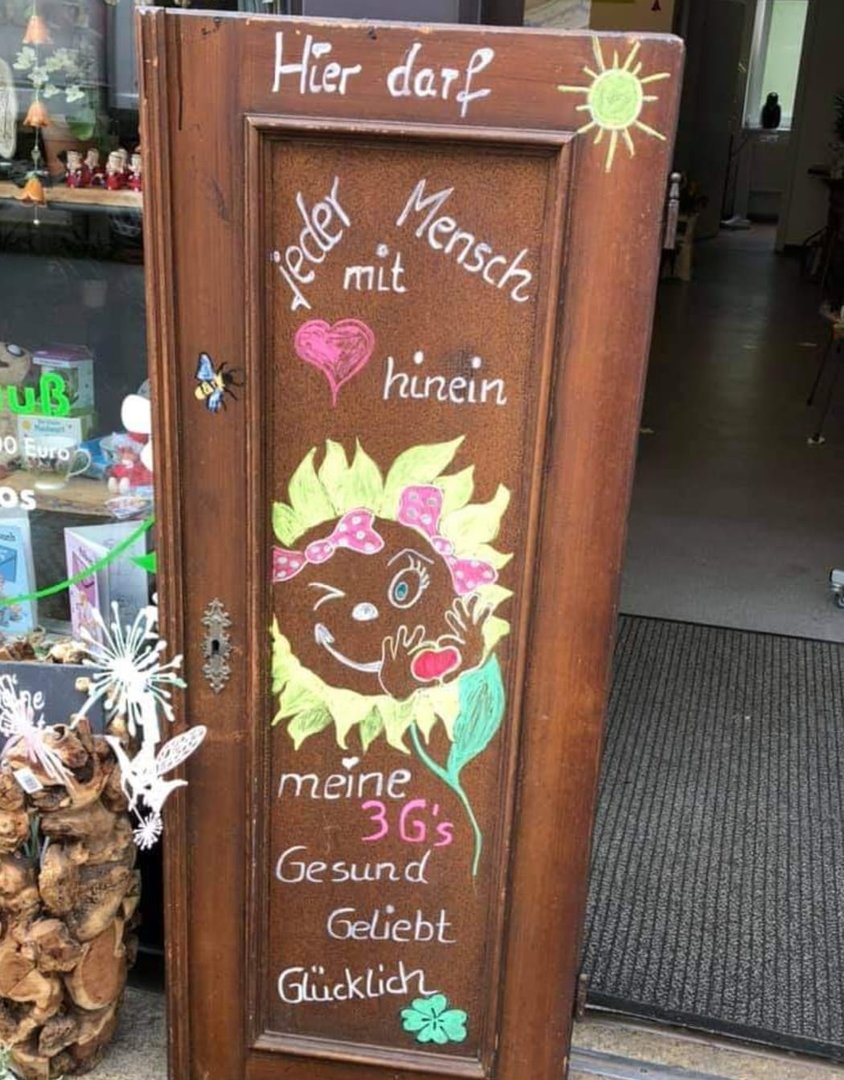 Hier darf
jeder Mensch
mit
hinein
meine
3G's
Gesund
Geliebt
Glücklich
uß
0 Euro
os